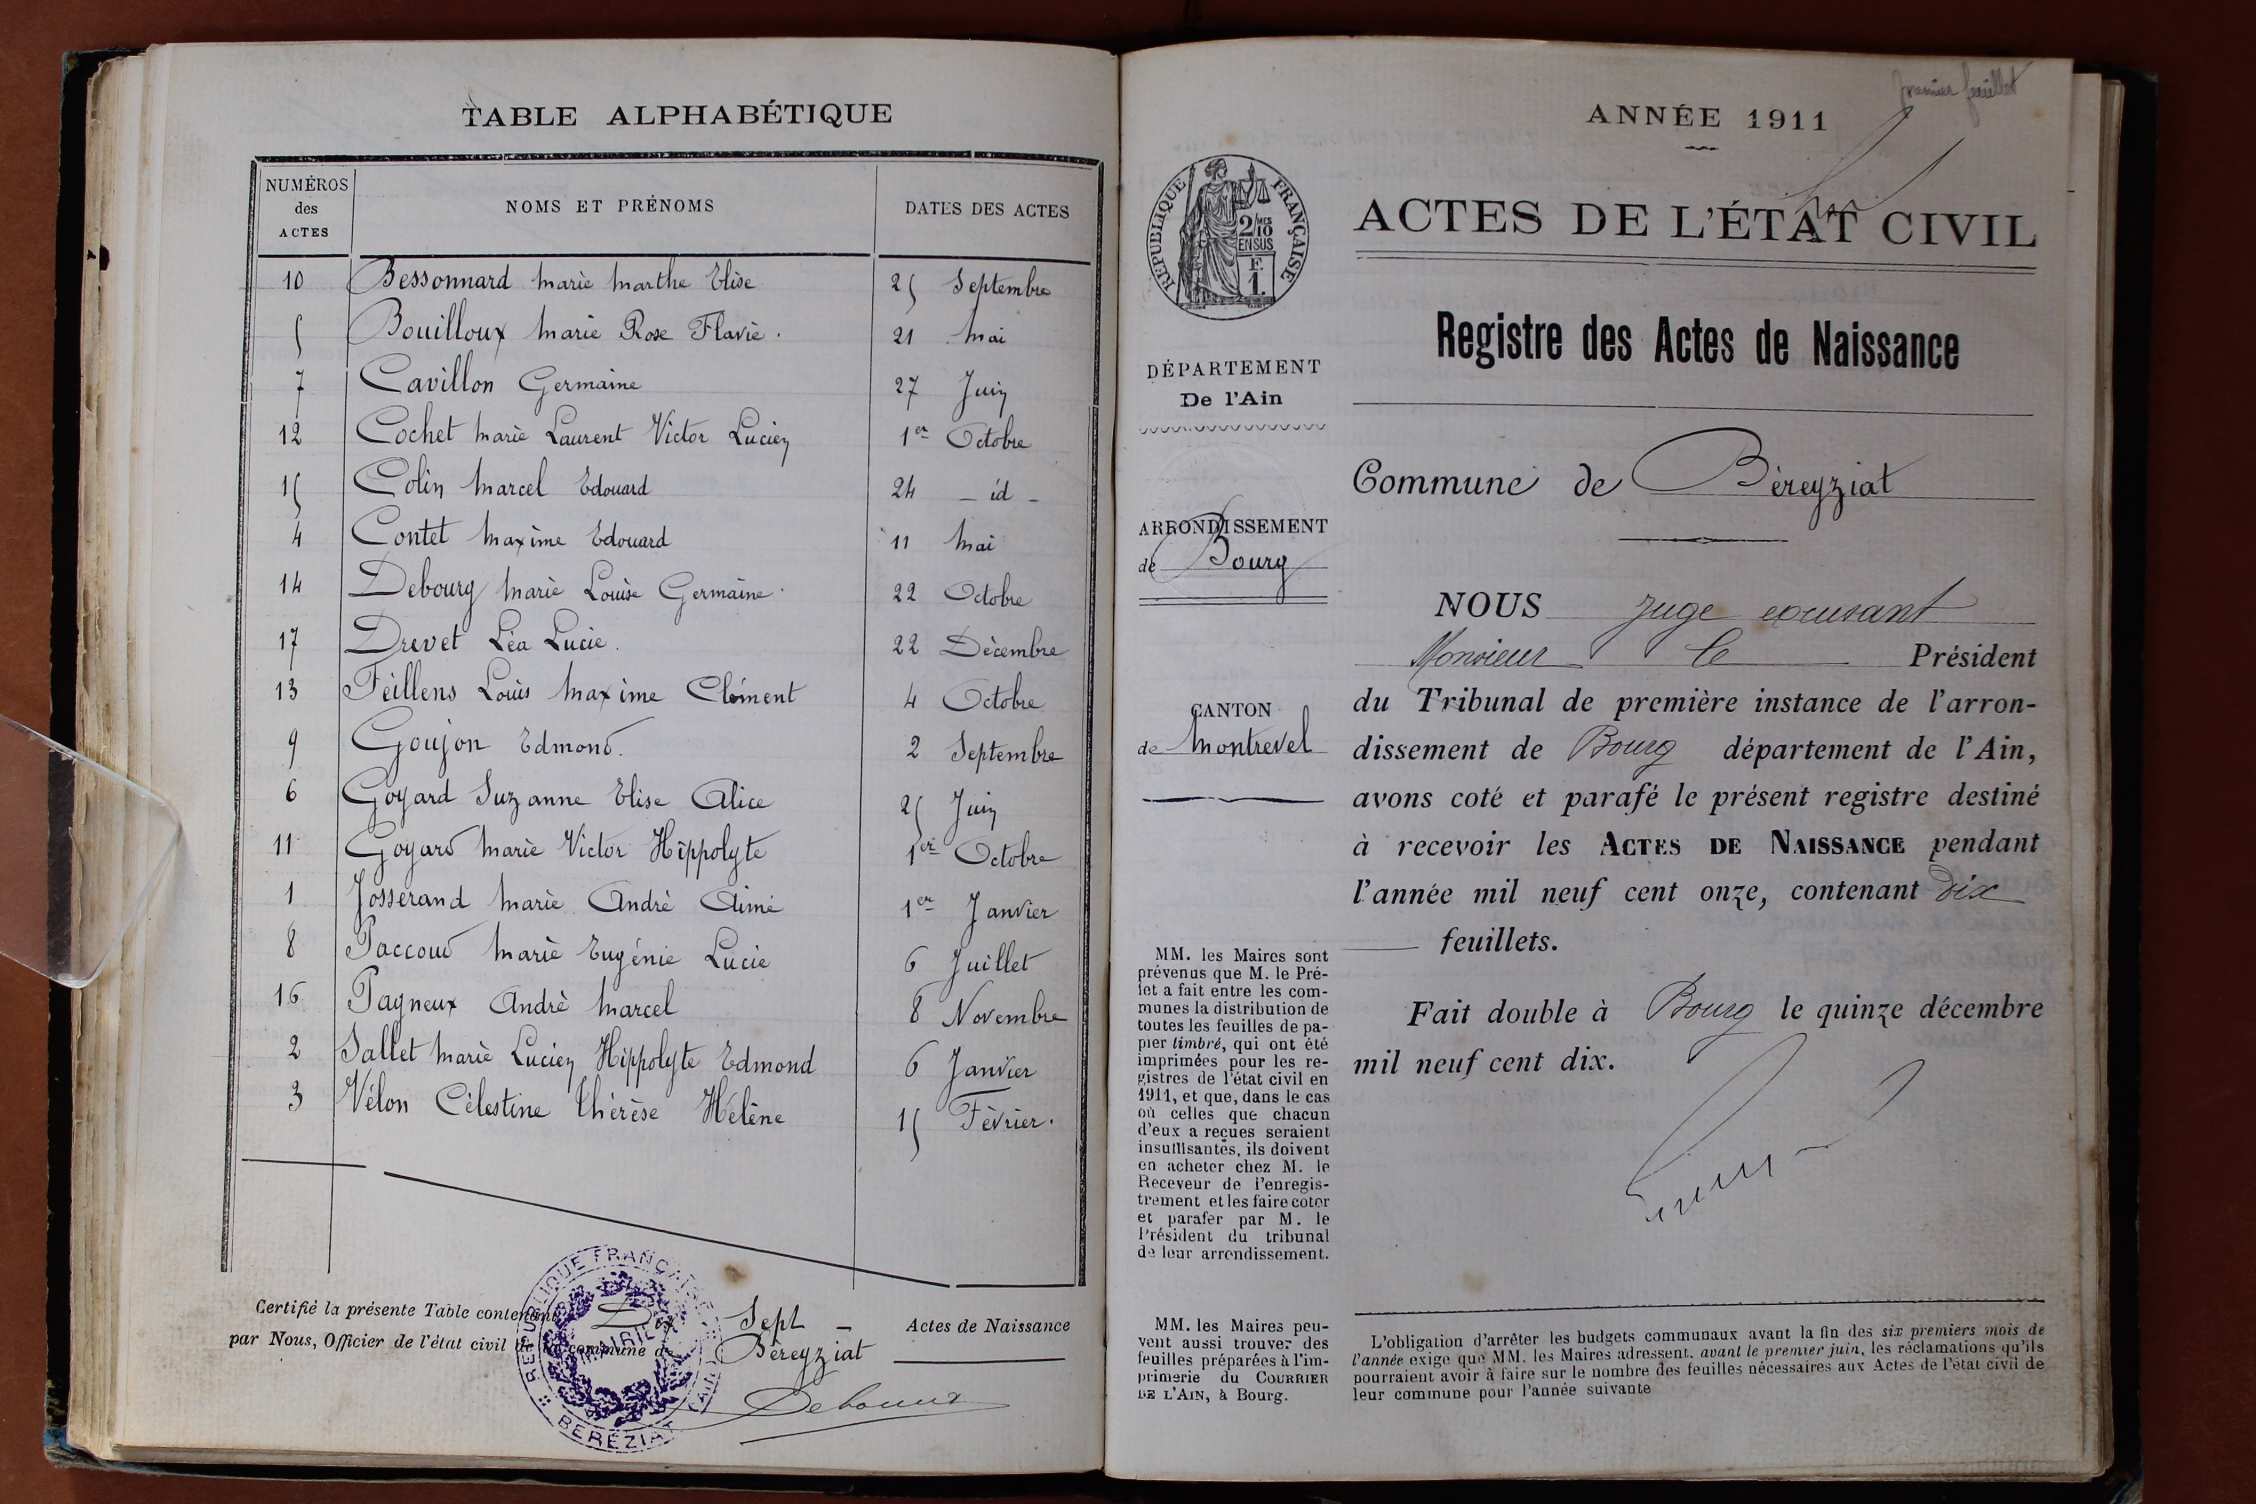 TABLE ALPHABÉTIQUE
NUMÉROS des ACTES
NOMS ET PRÉNOMS
DATES DES ACTES
10 Bessonnard Marie Marthe Elise 25 Septembre
5 Bouilloux Marie Rose Flavie. 21 Mai
7 Cavillon Germaine 27 Juin
12 Cochet Marie Laurent Victor Lucien 1er Octobre
15 Colin Marcel Edouard 24 - id -
4 Contet Maxime Edouard 11 Mai
14 Debourg Marie Louise Germaine. 22 Octobre
17 Drevet Léa Lucie. 22 Décembre
13 Feillens Louis Maxime Clément 4 Octobre
9 Goujon Edmond. 2 Septembre
6 Goyard Suzanne Elise Alice 25 Juin
11 Goyard Marie Victor Hippolyte 1er Octobre
1 Josserand Marie André Aimé 1er Janvier
8 Paccoud Marie Eugénie Lucie 6 Juillet
16 Pagneux André Marcel 8 Novembre
2 Sallet Marie Lucien Hippolyte Edmond 6 Janvier
3 Vélon Célestine Thérèse Hélène 15 Février.
Certifié la présente Table contenant Dix Sept - Actes de Naissance
par Nous, Officier de l'état civil de la commune de Béreyziat
RÉPUBLIQUE FRANÇAISE
MAIRIE
BÉRÉZIAT (AIN)
Debourg
premier feuillet
ANNÉE 1911
RÉPUBLIQUE FRANÇAISE
2/10 MES
EN SUS
F.
1.
ACTES DE L'ÉTAT CIVIL
Registre des Actes de Naissance
DÉPARTEMENT
De l'Ain
Commune de Béreyziat
ARRONDISSEMENT
de Bourg
NOUS juge excusant
Monsieur le Président
du Tribunal de première instance de l'arron-
dissement de Bourg département de l'Ain,
avons coté et parafé le présent registre destiné
à recevoir les ACTES DE NAISSANCE pendant
l'année mil neuf cent onze, contenant dix
feuillets.
Fait double à Bourg le quinze décembre
mil neuf cent dix.
CANTON
de Montrevel
MM. les Maires sont
prévenus que M. le Pré-
fet a fait entre les com-
munes la distribution de
toutes les feuilles de pa-
pier timbré, qui ont été
imprimées pour les re-
gistres de l'état civil en
1911, et que, dans le cas
où celles que chacun
d'eux a reçues seraient
insuffisantes, ils doivent
en acheter chez M. le
Receveur de l'enregis-
trement et les faire coter
et parafer par M. le
Président du tribunal
de leur arrondissement.
MM. les Maires peu-
vent aussi trouver des
feuilles préparées à l'im-
primerie du COURRIER
DE L'AIN, à Bourg.
L'obligation d'arrêter les budgets communaux avant la fin des six premiers mois de
l'année exige que MM. les Maires adressent, avant le premier juin, les réclamations qu'ils
pourraient avoir à faire sur le nombre des feuilles nécessaires aux Actes de l'état civil de
leur commune pour l'année suivante